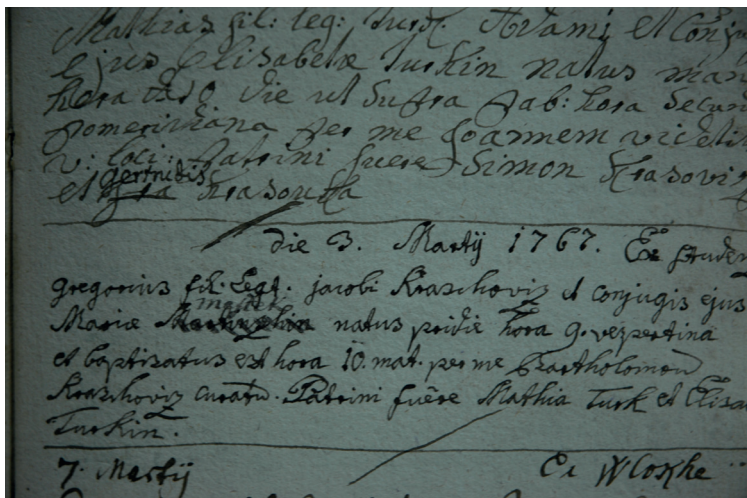 Mathias fil: leg: Adami et Conju
ejus Elisabetæ Turkin natus man
hora die ut Supra bab: hora Secun
pomeridiana per me Joannem
v: loci: Patrini fuere Simon Krasoviz
gertrudis
et Krasouka
die 3. Martij 1767. Ex
gregorius fil. Legt. jacobi Kraschoviz et conjugis ejus
Mariæ natus pridie hora 9. vespertina
et baptisatus est hora 10. mat. per me Bartholomeu
Kraschoviz curatu. Patrini fuēre Mathia Turk et Elisa
Turkin.
7. Martij Ex